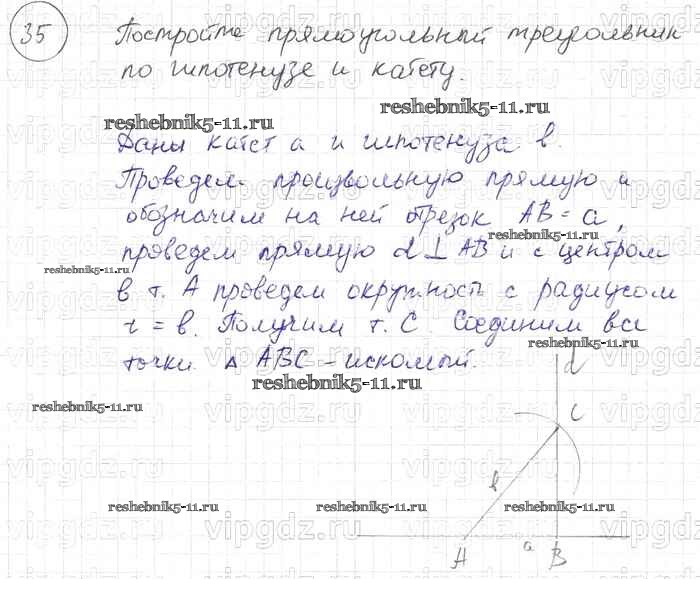 35 Постройте прямоугольный треугольник
по гипотенузе и катету.
reshebnik5-11.ru
reshebnik5-11.ru
Даны катет a и гипотенуза b.
Проведем произвольную прямую и
обозначим на ней отрезок AB = a,
reshebnik5-11.ru
проведем прямую d ⊥ AB и с центром
reshebnik5-11.ru
в т. A проведем окружность с радиусом
r = b. Получим т. C. Соединим все
reshebnik5-11.ru
точки. Δ ABC - искомый.
d
reshebnik5-11.ru
reshebnik5-11.ru
C
b
reshebnik5-11.ru
reshebnik5-11.ru
reshebnik5-11.ru
A a B
vipgdz.ru